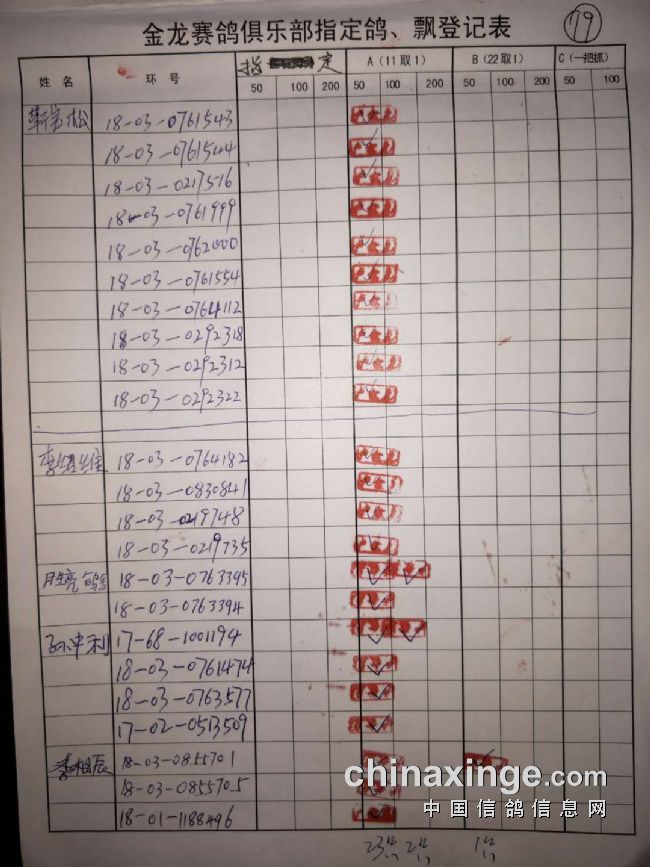 金龙赛鸽俱乐部指定鸽、飘登记表
79
姓 名 环 号 指 定 A(11取1) B(22取1) C(一把抓)
50 100 200 50 100 200 50 100 200 50 100
18-03-0761543
18-03-0761544
18-03-0217516
18-03-0761999
18-03-0762000
18-03-0761554
18-03-0764112
18-03-0292318
18-03-0292312
18-03-0292322
18-03-0764182
18-03-0830841
18-03-0219748
18-03-0219735
胜亮鸽舍 18-03-0763395
18-03-0763394
孙中利 17-68-1001194
18-03-0761474
18-03-0763577
17-02-0513509
李相辰 18-03-0855701
18-03-0855705
18-01-1188496
chinaxinge.com
中国信鸽信息网